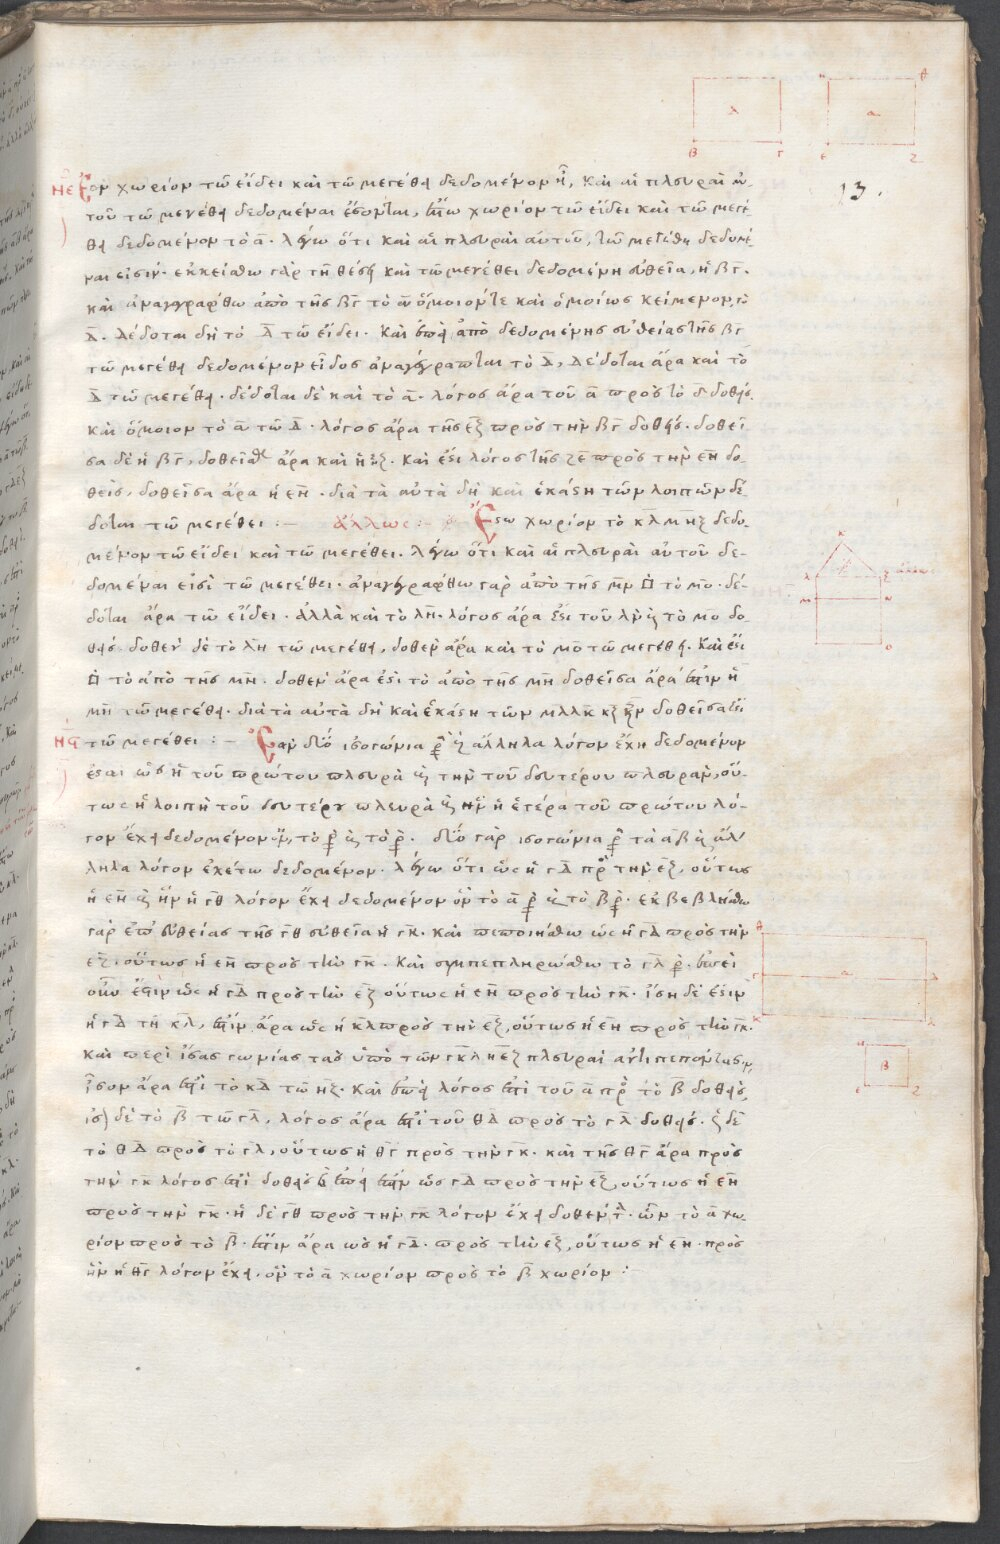 Ἐὰν χωρίον τῶ εἴδει καὶ τῶ μεγέθει δεδομένον ἦ, καὶ αἱ πλευραὶ αὐ-
τοῦ τῶ μεγέθει δεδομέναι ἔσονται, ἔστω χωρίον τῶ εἴδει καὶ τῶ μεγέ-
θει δεδομένον τὸ α. λέγω ὅτι καὶ αἱ πλευραὶ αὐτοῦ, τῶ μεγέθει δεδομέ-
ναι εἰσίν. ἐκκείσθω γὰρ τῆ θέσει καὶ τῶ μεγέθει δεδομένη εὐθεῖα, ἡ βγ.
καὶ ἀναγεγράφθω ἀπὸ τῆς βγ τὸ ὅμοιόν τε καὶ ὁμοίως κείμενον, τὸ
δ. δέδοται δὴ τὸ δ τῶ εἴδει. καὶ ἐπεὶ ἀπὸ δεδομένης εὐθείας τῆς βγ
τῶ μεγέθει δεδομένον εἶδος ἀναγέγραπται τὸ δ, δέδοται ἄρα καὶ τὸ
δ τῶ μεγέθει. δέδοται δὲ καὶ τὸ α. λόγος ἄρα τοῦ α πρὸς τὸ δ δοθείς.
καὶ ὅμοιον τὸ α τῶ δ. λόγος ἄρα τῆς εζ πρὸς τὴν βγ δοθείς. δοθεῖ
σα δὲ ἡ βγ, δοθεῖσα ἄρα καὶ ἡ εζ. καὶ ἔστι λόγος τῆς ζε πρὸς τὴν εη δο-
θεὶς, δοθεῖσα ἄρα ἡ εη. διὰ τὰ αὐτὰ δὴ καὶ ἑκάστη τῶν λοιπῶν δέ-
δοται τῶ μεγέθει :– ἄλλως :– Ἔστω χωρίον τὸ κλμηξ δεδο-
μένον τῶ εἴδει καὶ τῶ μεγέθει. λέγω ὅτι καὶ αἱ πλευραὶ αὐτοῦ δε-
δομέναι εἰσὶ τῶ μεγέθει. ἀναγεγράφθω γὰρ ἀπὸ τῆς μν □ τὸ μο. δέ-
δοται ἄρα τῶ εἴδει. ἀλλὰ καὶ τὸ λη. λόγος ἄρα ἐστὶ τοῦ λν πρὸς τὸ μο δο-
θείς. δοθὲν δὲ τὸ λη τῶ μεγέθει, δοθὲν ἄρα καὶ τὸ μο τῶ μεγέθει. καὶ ἔστι
□ τὸ ἀπὸ τῆς μη. δοθὲν ἄρα ἐστὶ τὸ ἀπὸ τῆς μη δοθεῖσα ἄρα ἐστὶν ἡ
μη τῶ μεγέθει. διὰ τὰ αὐτὰ δὴ καὶ ἑκάστη τῶν μλ λκ κξ ξη δοθεῖσα ἐστὶ
τῶ μεγέθει :– Ἐὰν δύο ἰσογώνια πρὸς ἄλληλα λόγον ἔχη δεδομένον
ἔσται ὡς ἡ τοῦ πρώτου πλευρὰ πρὸς τὴν τοῦ δευτέρου πλευρὰν, οὕ-
τως ἡ λοιπὴ τοῦ δευτέρου πλευρὰ πρὸς ἣν ἡ ἑτέρα τοῦ πρώτου λό-
γον ἔχει δεδομένον ὃν, τὸ πρὸς τὸ. δύο γὰρ ἰσογώνια τὰ α β πρὸς ἄλ
ληλα λόγον ἐχέτω δεδομένον. λέγω ὅτι ὡς ἡ γδ πρὸς τὴν εζ, οὕτως
ἡ εη πρὸς ἣν ἡ γθ λόγον ἔχει δεδομένον ὃν τὸ α πρὸς τὸ β. ἐκβεβλήσθω
γὰρ ἐπ' εὐθείας τῆς γθ εὐθεῖα ἡ γκ. καὶ πεποιήσθω ὡς ἡ γδ πρὸς τὴν
εζ. οὕτως ἡ εη πρὸς τὴν γκ. καὶ συμπεπληρώσθω τὸ γλ. ἐπεὶ
οὖν ἐστιν ὡς ἡ γδ πρὸς τὴν εζ οὕτως ἡ εη πρὸς τὴν γκ. ἴση δέ ἐστιν
ἡ γδ τῆ κλ, ἔστιν ἄρα ὡς ἡ κλ πρὸς τὴν εζ, οὕτως ἡ εη πρὸς τὴν γκ.
καὶ περὶ ἴσας γωνίας τὰς ὑπὸ τῶν γκλ ηεζ πλευραὶ ἀντιπεπόνθασιν,
ἴσον ἄρα ἐστὶ τὸ κδ τῶ ηζ. καὶ ἐπεὶ λόγος ἐστὶ τοῦ α πρὸς τὸ β δοθεὶς,
ἴσον δὲ τὸ β τῶ γλ, λόγος ἄρα ἐστὶ τοῦ θδ πρὸς τὸ γλ δοθείς. ὡς δὲ
τὸ θδ πρὸς τὸ γλ, οὕτως ἡ θγ πρὸς τὴν γκ. καὶ τῆς θγ ἄρα πρὸς
τὴν γκ λόγος ἐστὶ δοθείς ἐπεί ἐστιν ὡς γδ πρὸς τὴν εζ, οὕτως ἡ εη
πρὸς τὴν γκ. ἡ δὲ γθ πρὸς τὴν γκ λόγον ἔχει δοθέντα ὃν τὸ α χω
ρίον πρὸς τὸ β. ἔστιν ἄρα ὡς ἡ γδ. πρὸς τὴν εζ, οὕτως ἡ εη. πρὸς
ἣν ἡ θγ λόγον ἔχει, ὃν τὸ α χωρίον πρὸς τὸ β χωρίον :
13.